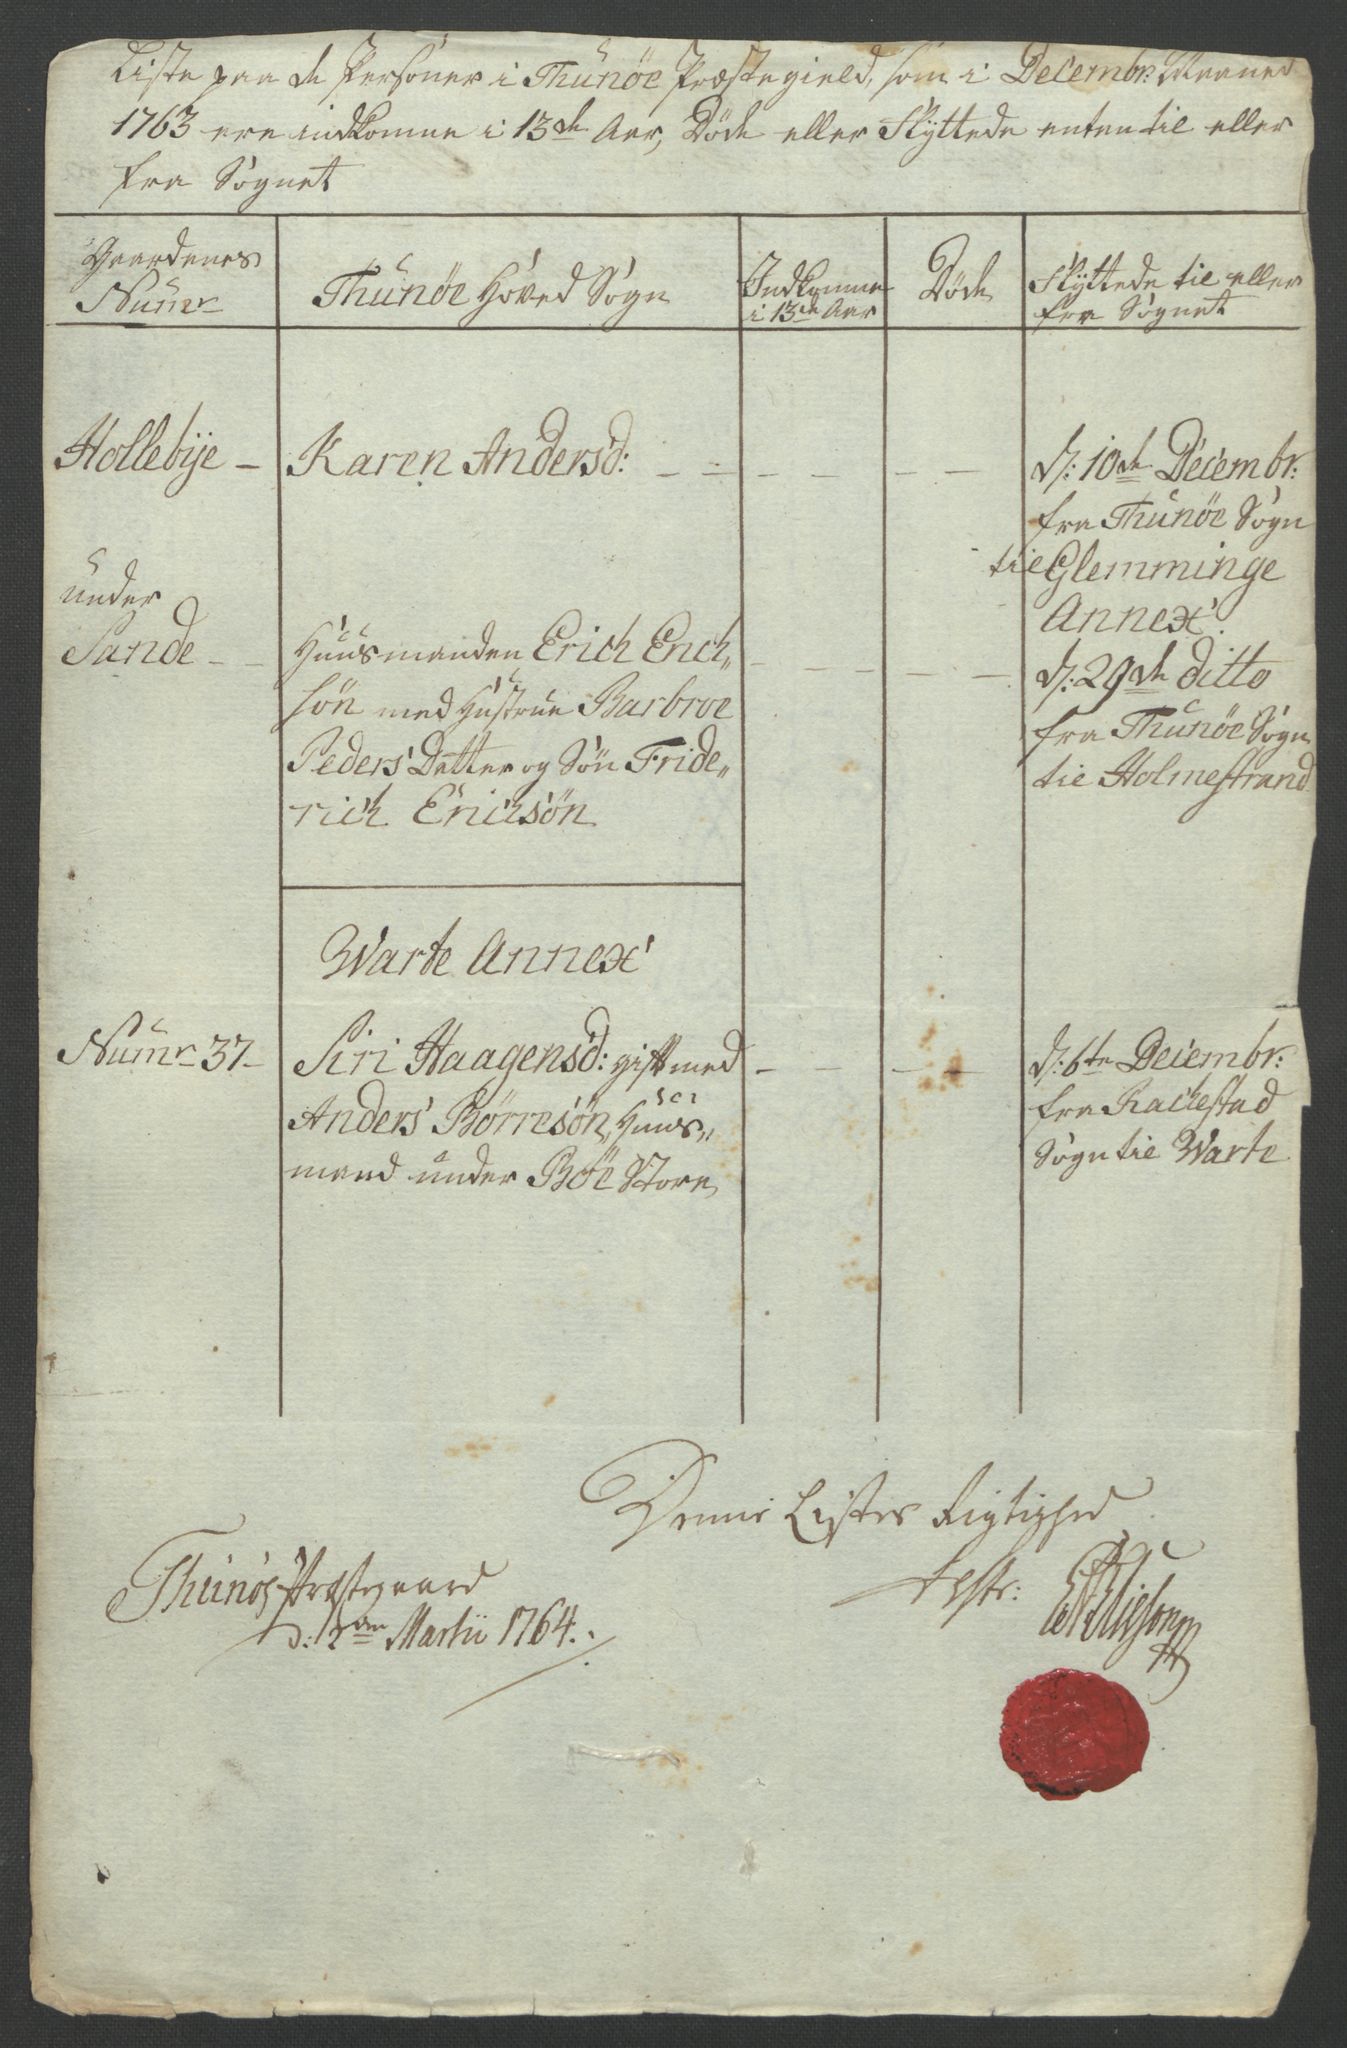 Liste paa de Personer i Thunöe Præstegield, som i Decembr: Maaned
1763 ere indkomne i 13de Aar, Döde eller Flyttede enten til eller
fra Sognet
Gaardenes
Numr
Thunöe Hoved Sogn
Indkomne
i 13de Aar
Döde
Flyttede til eller
fra Sognet
Hollebije - Karen Andersd: - - - - - -
d: 10de Decembr:
fra Thunöe Sogn
til Glemminge
Annex.
under
Sande - -
Huusmanden Erich Erich„
sön med Hustrue Barbroe
Peders Datter og Sön Fride„
rich Ericksön
d: 29de ditto
fra Thunöe Sogn
til Holmestrand
Warte Annex
Numr 37 -
Siri Haagensd: gift med
Anders Börresön, Huus„
mand under Böe Store
d: 6te Decembr:
fra Rackestad
Sogn til Warte
Denne Listes Rigtighed
test:
Thunöe Præstegaard
d: 2den Martii 1764.